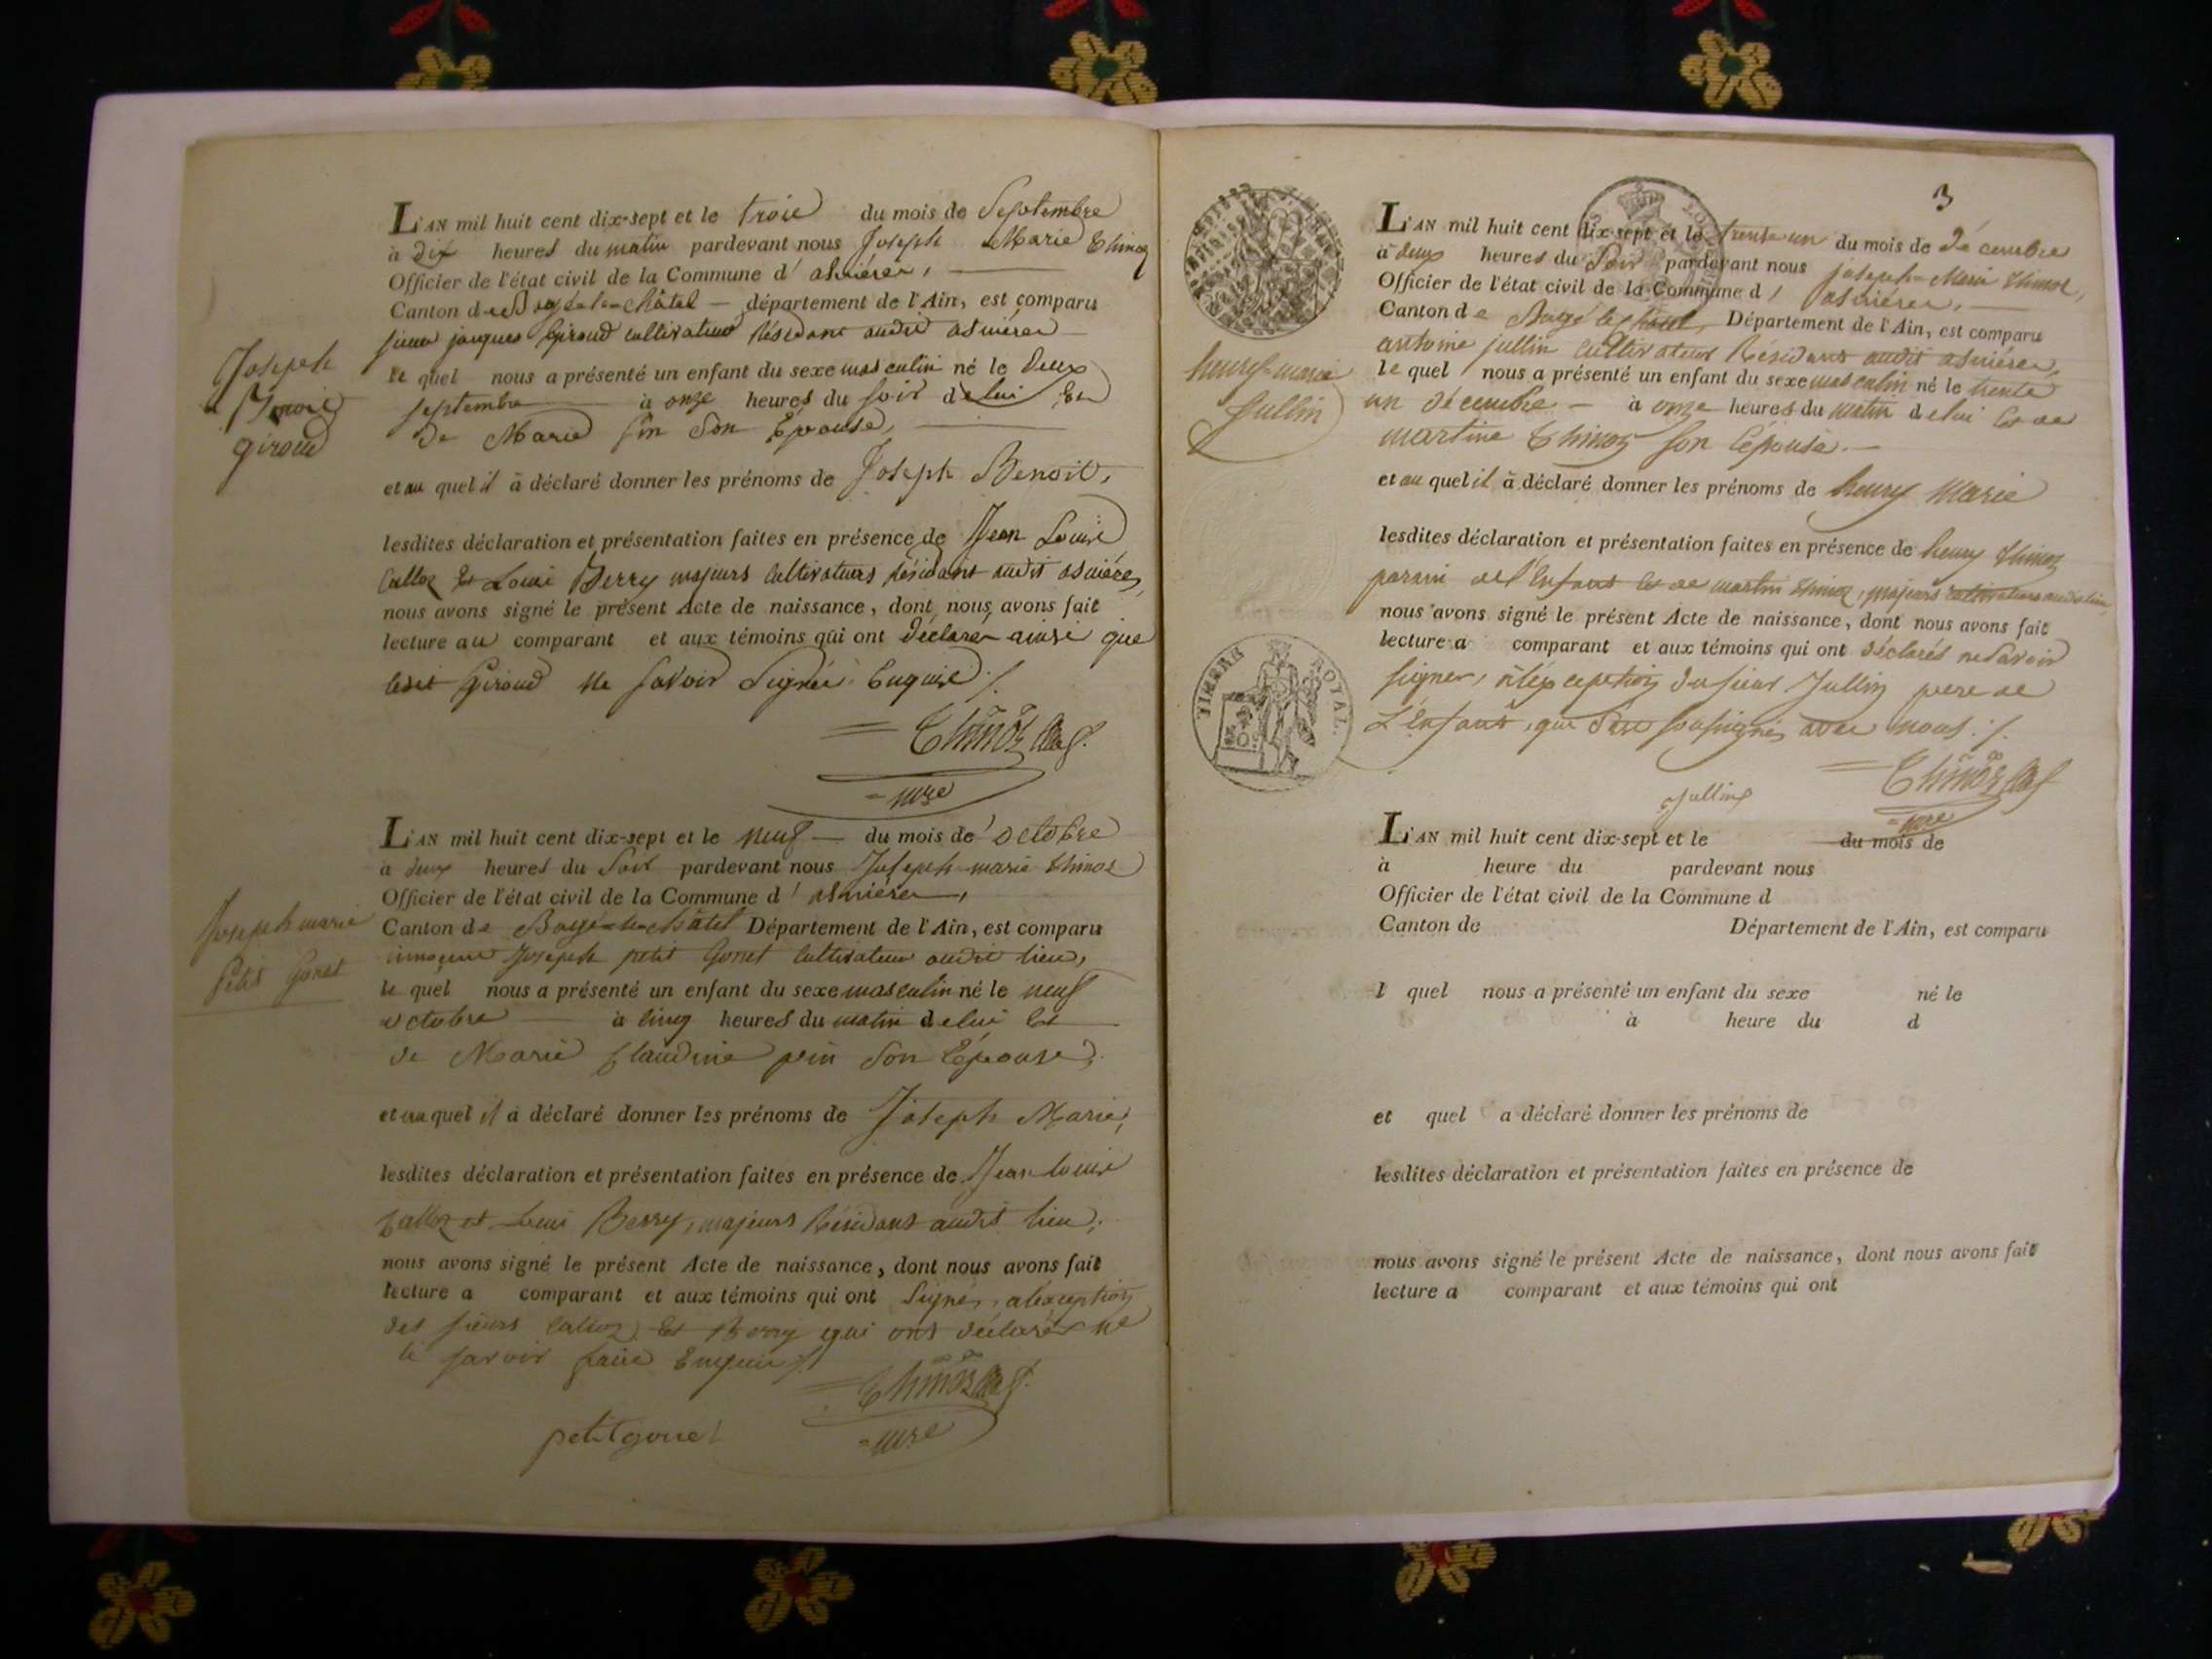 Joseph
Benoit
giroud
L'AN mil huit cent dix-sept et le trois du mois de Septembre
à dix heures du matin pardevant nous Joseph Marie Thinoz
Officier de l'état civil de la Commune d' asnières,
Canton de Bagé-le-Châtel — département de l'Ain, est comparu
sieur jacques Giroud cultivateur Résidant audit asnières
le quel nous a présenté un enfant du sexe masculin né le deux
septembre à onze heures du soir de lui Et
de Marie fin Son Epouse,
et au quel il à déclaré donner les prénoms de Joseph Benoit,
lesdites déclaration et présentation faites en présence de Jean Louis
Calloz Et Louis Berry majeurs Cultivateurs résidant audit asnières,
nous avons signé le présent Acte de naissance, dont nous avons fait
lecture au comparant et aux témoins qui ont déclarés ainsi que
ledit Giroud ne savoir Signer Enquis ./.
Thinoz
mre
Joseph marie
Petit Gonet
L'AN mil huit cent dix-sept et le neuf — du mois de octobre
à deux heures du Soir pardevant nous Joseph-marie thinoz
Officier de l'état civil de la Commune d' asnières,
Canton de Bagé-le-Châtel Département de l'Ain, est comparu
Joseph petit Gonet Cultivateur audit lieu,
le quel nous a présenté un enfant du sexe masculin né le neuf
octobre à cinq heures du matin de lui Et
de Marie Claudine pein Son Epouse,
et au quel il a déclaré donner les prénoms de Joseph Marie,
lesdites déclaration et présentation faites en présence de Jean louis
Calloz et Louis Berry, majeurs Résidans audit lieu,
nous avons signé le présent Acte de naissance, dont nous avons fait
lecture a comparant et aux témoins qui ont Signés, a léxception
des sieurs Calloz Et Berry qui ont déclarés ne
le savoir faire Enquis ./.
petitgonet
Thinoz
mre
3
TIMBRE ROYAL.
henry-marie
Jullin
L'AN mil huit cent dix-sept et le trente un du mois de décembre
à deux heures du Soir pardevant nous joseph-Marie thinoz,
Officier de l'état civil de la Commune d' asnières,
Canton de Bagé le châtel, Département de l'Ain, est comparu
antoine jullin cultivateur Résidant audit asnières,
le quel nous a présenté un enfant du sexe masculin né le trente
un décembre — à onze heures du matin de lui Et de
martine Thinoz son Epouse. —
et au quel il à déclaré donner les prénoms de henry Marie
lesdites déclaration et présentation faites en présence de henry thinoz
parain de l'Enfant Et de martin thinoz, majeurs cultivateurs audit lieu,
nous avons signé le présent Acte de naissance, dont nous avons fait
lecture a comparant et aux témoins qui ont déclarés ne Savoir
signer, à léxception du sieur Jullin pere de
L'Enfant, qui S'est soussigné avec nous ./.
Jullin
Thinoz
mre
L'AN mil huit cent dix-sept et le du mois de
à heure du pardevant nous
Officier de l'état civil de la Commune d
Canton de Département de l'Ain, est comparu
l quel nous a présenté un enfant du sexe né le
à heure du d
et quel a déclaré donner les prénoms de
lesdites déclaration et présentation faites en présence de
nous avons signé le présent Acte de naissance, dont nous avons fait
lecture a comparant et aux témoins qui ont